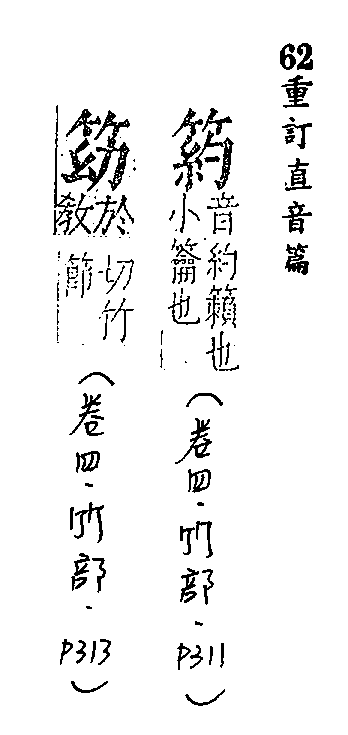 62重訂直音篇
箹
音約籟也
小籥也
(卷四·竹部·P311)
䈊
於教切竹節
(卷四·竹部·P313)